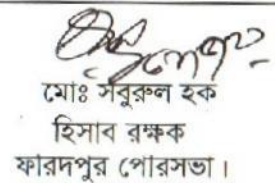 মোঃ সবুরুল হক
হিসাব রক্ষক
ফারদপুর পৌরসভা।